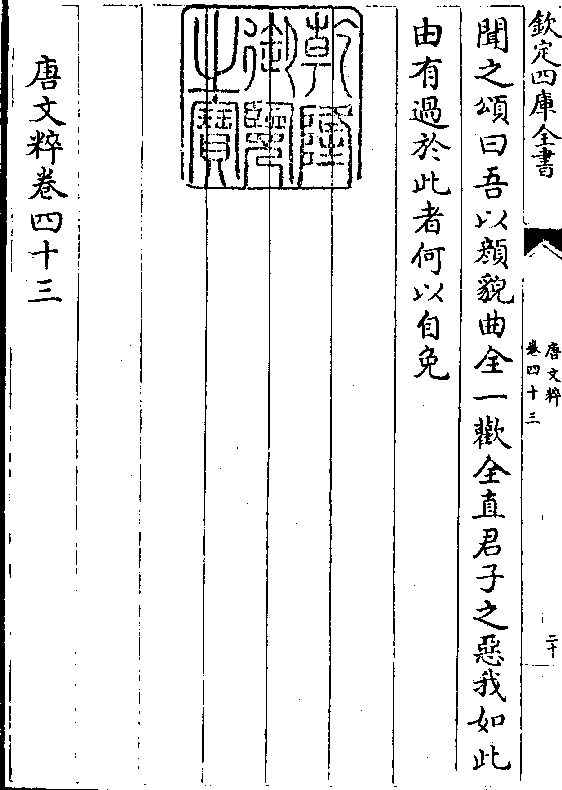 欽定四庫全書
唐文粹
卷四十三
二十
聞之頌曰吾以顔貌曲全一歡全直君子之惡我如此
由有過於此者何以自免
乾隆御覽之寶
唐文粹卷四十三